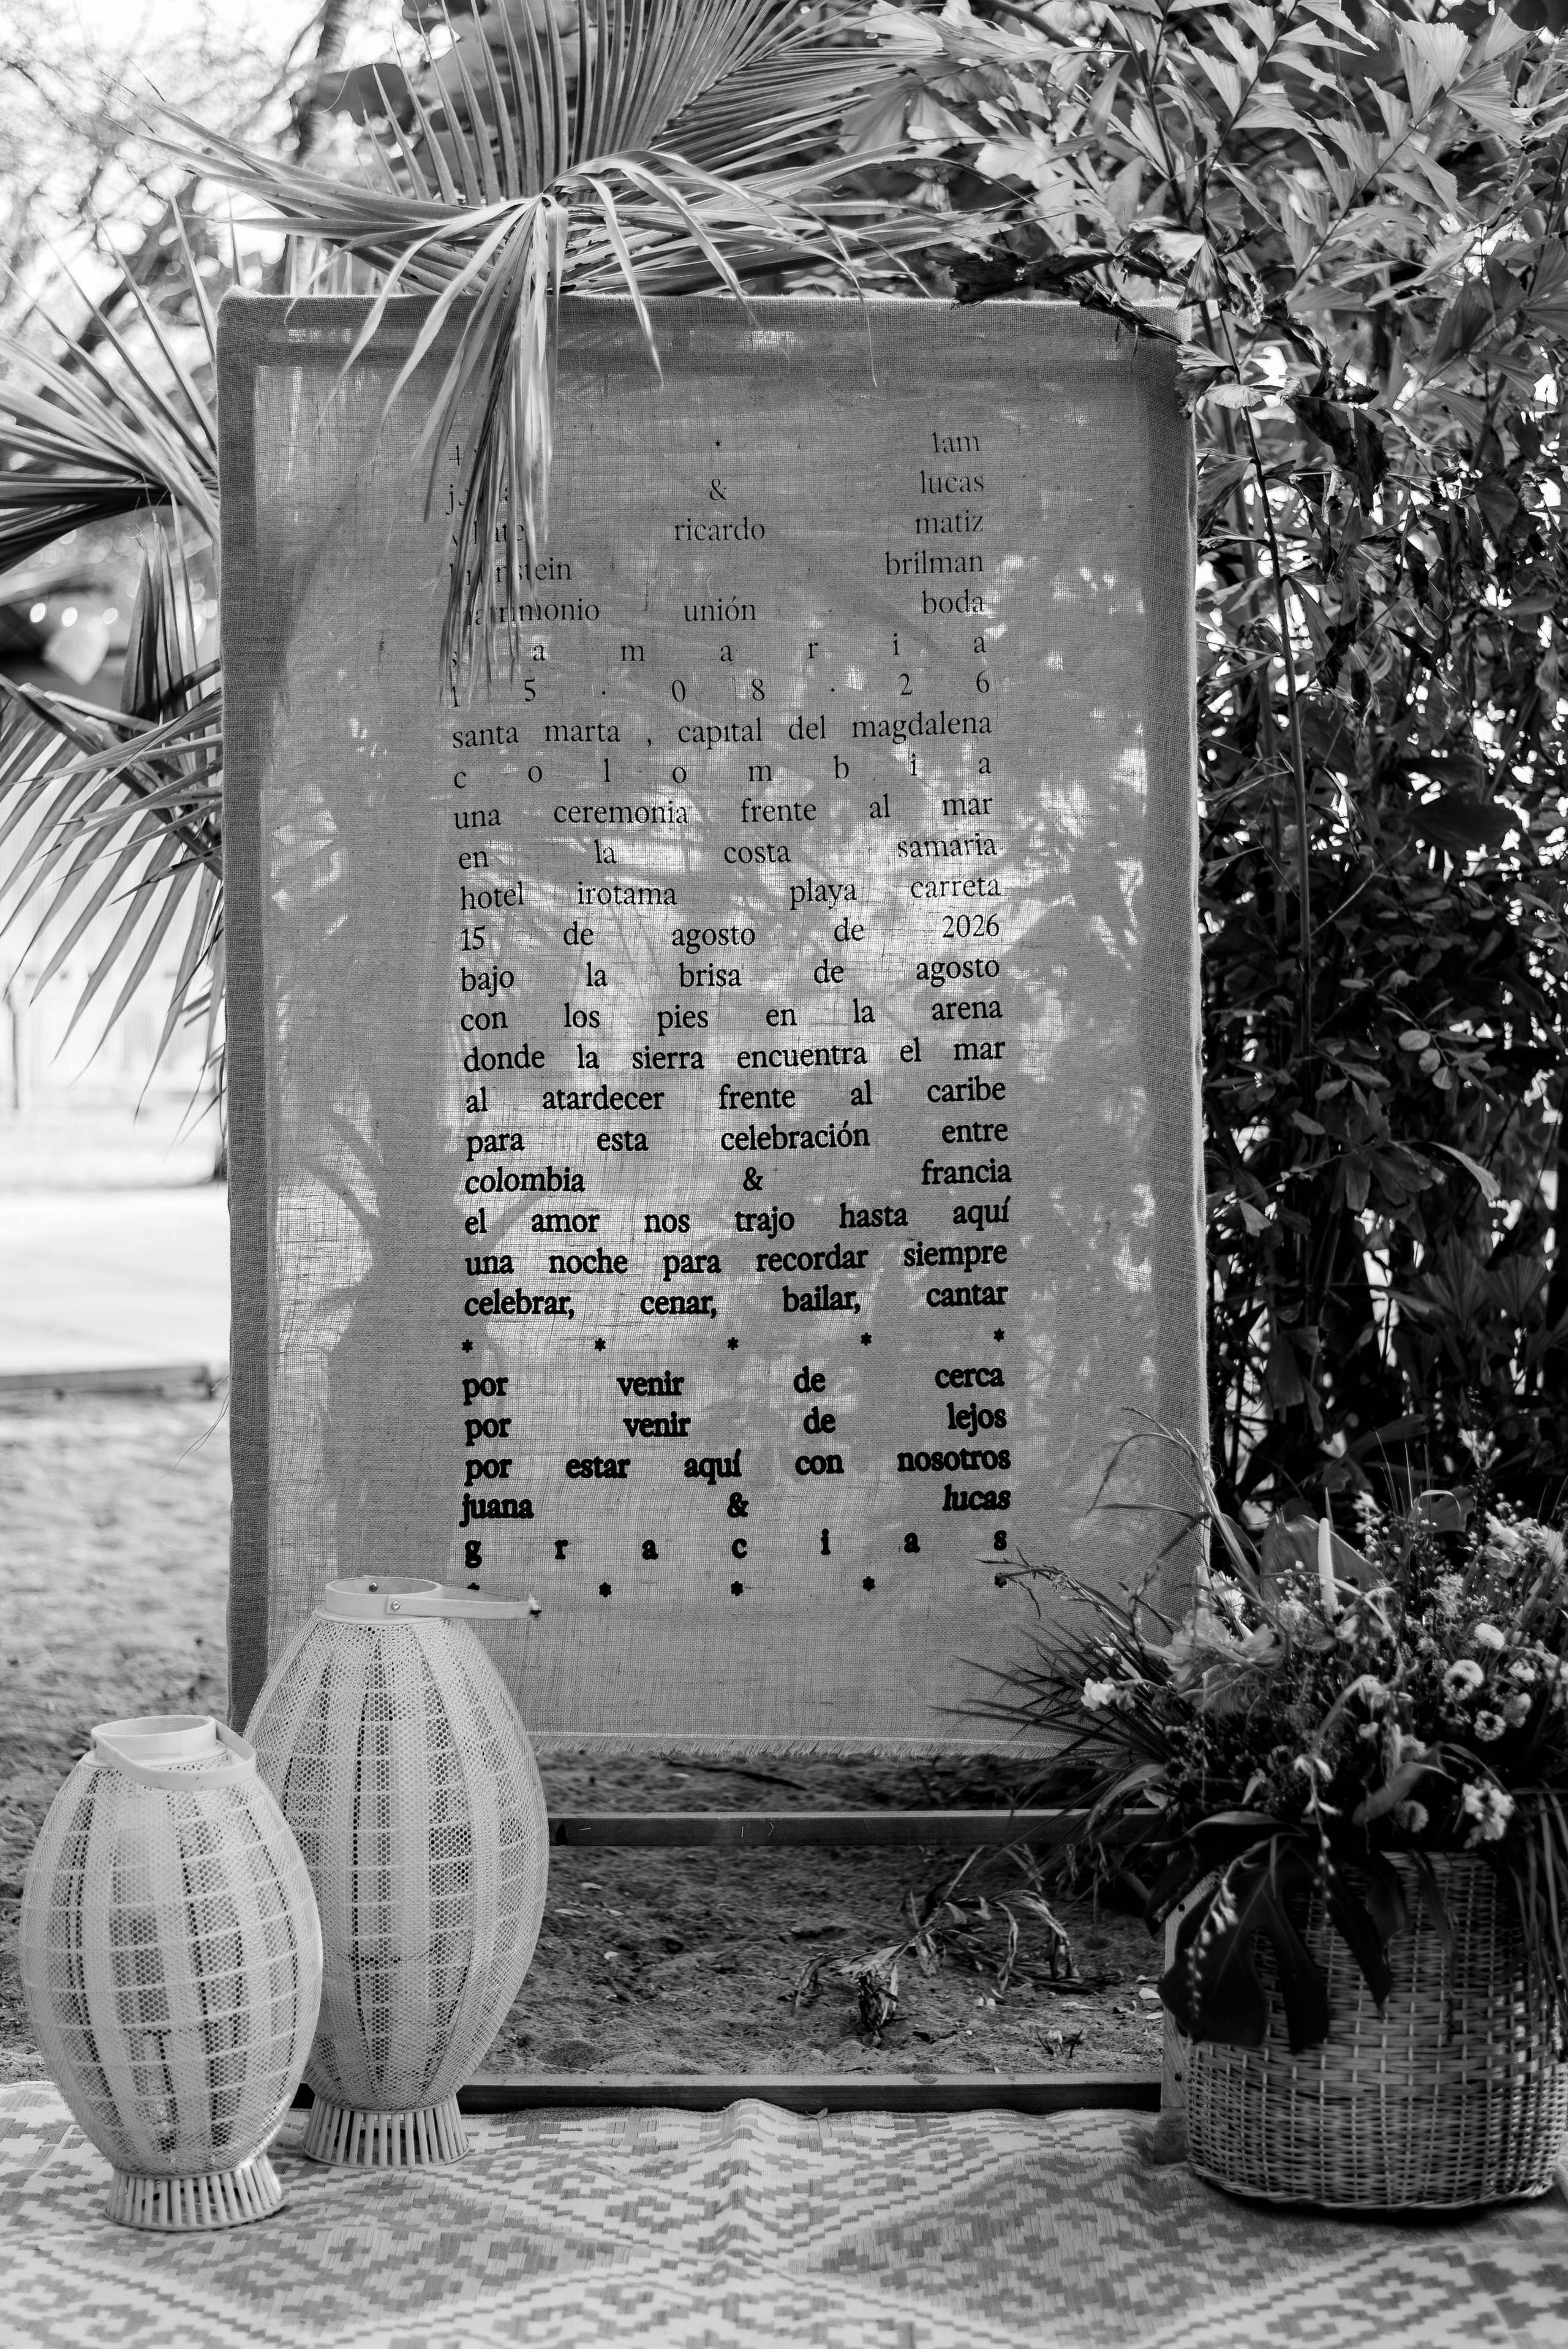 * 1am
& lucas
ricardo matiz
brilman
matrimonio unión boda
s a m a r i a
1 5 . 0 8 . 2 6
santa marta , capital del magdalena
c o l o m b i a
una ceremonia frente al mar
en la costa samaria
hotel irotama playa carreta
15 de agosto de 2026
bajo la brisa de agosto
con los pies en la arena
donde la sierra encuentra el mar
al atardecer frente al caribe
para esta celebración entre
colombia & francia
el amor nos trajo hasta aquí
una noche para recordar siempre
celebrar, cenar, bailar, cantar
* * * * *
por venir de cerca
por venir de lejos
por estar aquí con nosotros
juana & lucas
g r a c i a s
* * * * *